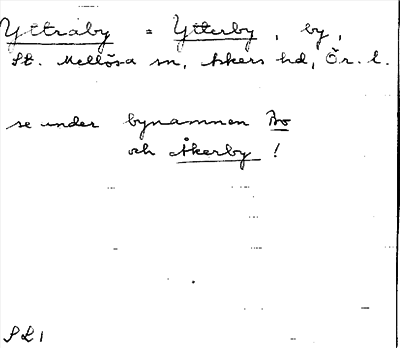 Yttraby = Ytterby, by,
St. Mellösa sn, Askers hd, Ör. l.
se under bynamnen Bo
och Åkerby!
SL1